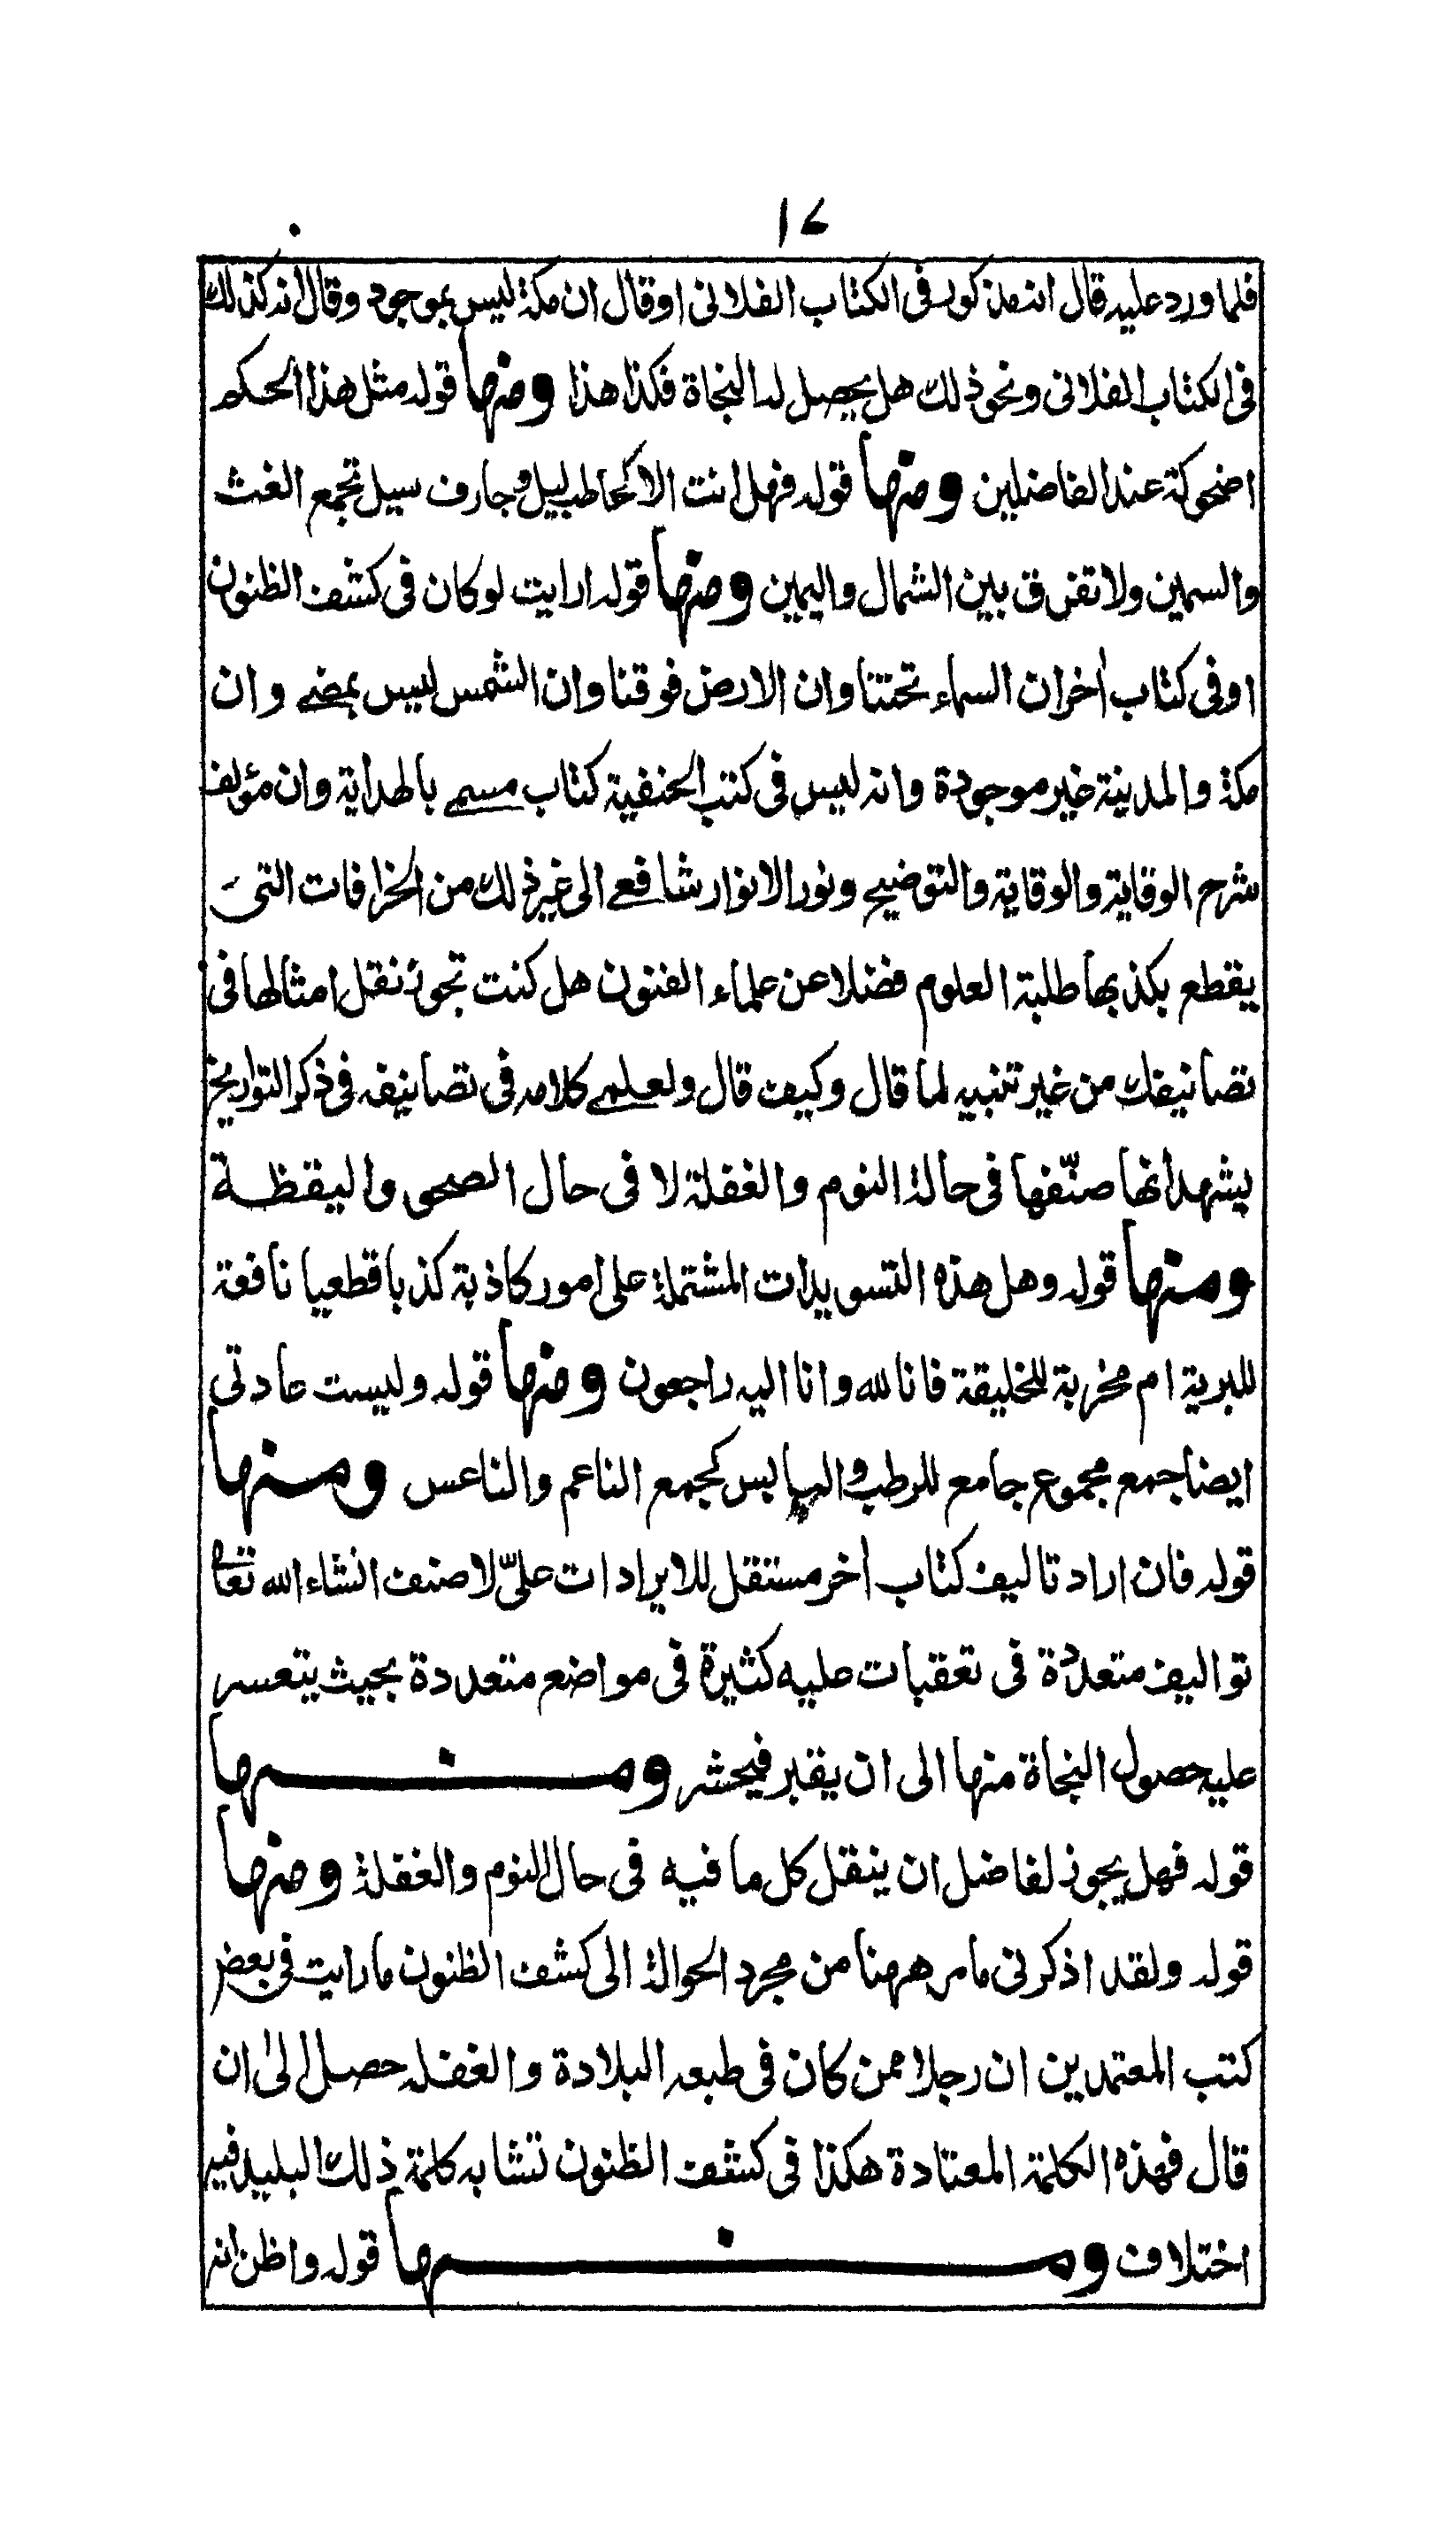 ١٧
فلما ورد عليه قال انه مذكور فى الكتاب الفلانى او قال ان مكة ليس بموجود وقال انه كذلك
فى الكتاب الفلانى ونحو ذلك هل يحصل له النجاة فكذا هذا ومنها قوله مثل هذا الحكم
اضحوكة عند الفاضلين ومنها قوله فهل انت الا كحاطب ليل وجارف سيل تجمع الغث
والسمين ولا تفرق بين الشمال واليمين ومنها قوله ارايت لو كان فى كشف الظنون
او فى كتاب اٰخر ان السماء تحتنا وان الارض فوقنا وان الشمس ليس بمضے وان
مكة والمدينة غير موجودة وانه ليس فى كتب الحنفية كتاب مسمے بالهداية وان مؤلف
شرح الوقاية والوقاية والتوضيح ونور الانوار شافعے الى غير ذلك من الخرافات التى
يقطع بكذبها طلبة العلوم فضلا عن علماء الفنون هل كنت تجوز نقل امثالها فى
تصانيفك من غير تنبيه لما قال وكيف قال ولعلمے كلامه فى تصانيفه فى ذكر التواريخ
يشهد انها صنّفها فى حالة النوم والغفلة لا فى حال الصحو واليقظة
ومنها قوله وهل هذه التسويدات المشتملة على امور كاذبة كذبا قطعيا نافعة
للبرية ام مخربة للخليقة فانا لله وانا اليه راجعون ومنها قوله وليست عادتى
ايضا جمع مجموع جامع للرطب واليابس كجمع الناعم والناعس ومنها
قوله فان اراد تاليف كتاب اٰخر مستقل للايرادات علىّ لاصنف انشاء الله تعالى
تواليف متعددة فى تعقبات عليه كثيرة فى مواضع متعددة بحيث يتعسر
عليه حصول النجاة منها الى ان يقبر فيحشر ومنها
قوله فهل يجوز لفاضل ان ينقل كل ما فيه فى حال النوم والغفلة ومنها
قوله ولقد اذكرنى ما مر ههنا من مجرد الحوالة الى كشف الظنون ما رايت فى بعض
كتب المعتمدين ان رجلا ممن كان فى طبعه البلادة والغفله حصل الىٰ ان
قال فهذه الكلمة المعتادة هكذا فى كشف الظنون تشابه كلمة ذلك البليد فيه
اختلاف ومنها قوله واظن انه